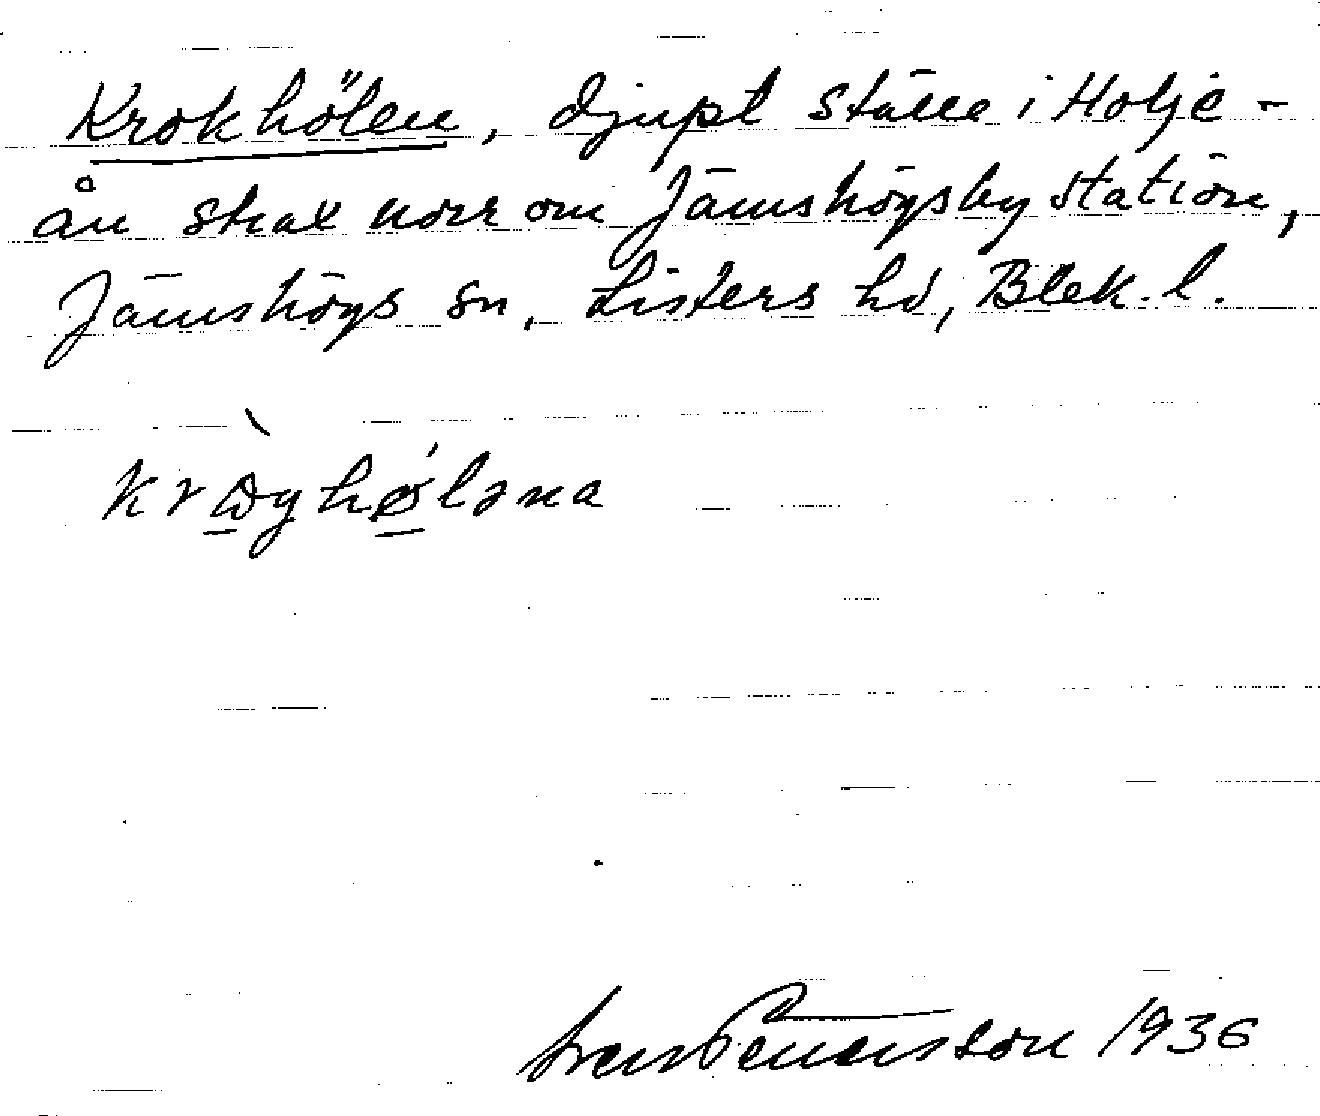 Krokhölen, djupt ställe i Holje-
ån strax norr om Jämshögsby station,
Jämshögs sn, Listers hd, Blek. l.
1936